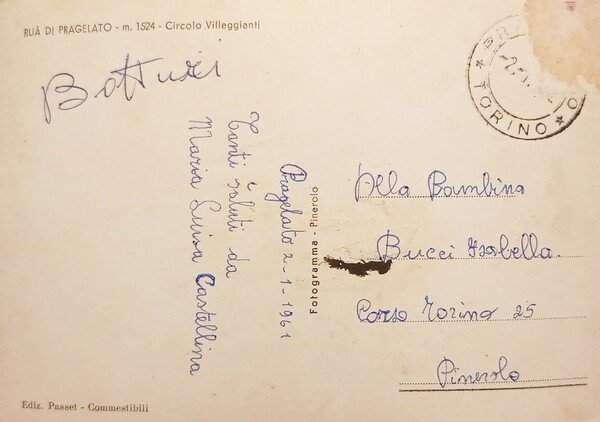 RUÀ DI PRAGELATO - m. 1524 - Circolo Villeggianti
Pragelato 2-1-1961
Tanti saluti da
Maria Luisa Castellina
Fotogramma - Pinerolo
TORINO
Alla Bambina
Bucci Isabella
Corso Torino 25
Pinerolo
Ediz. Passet - Commestibili